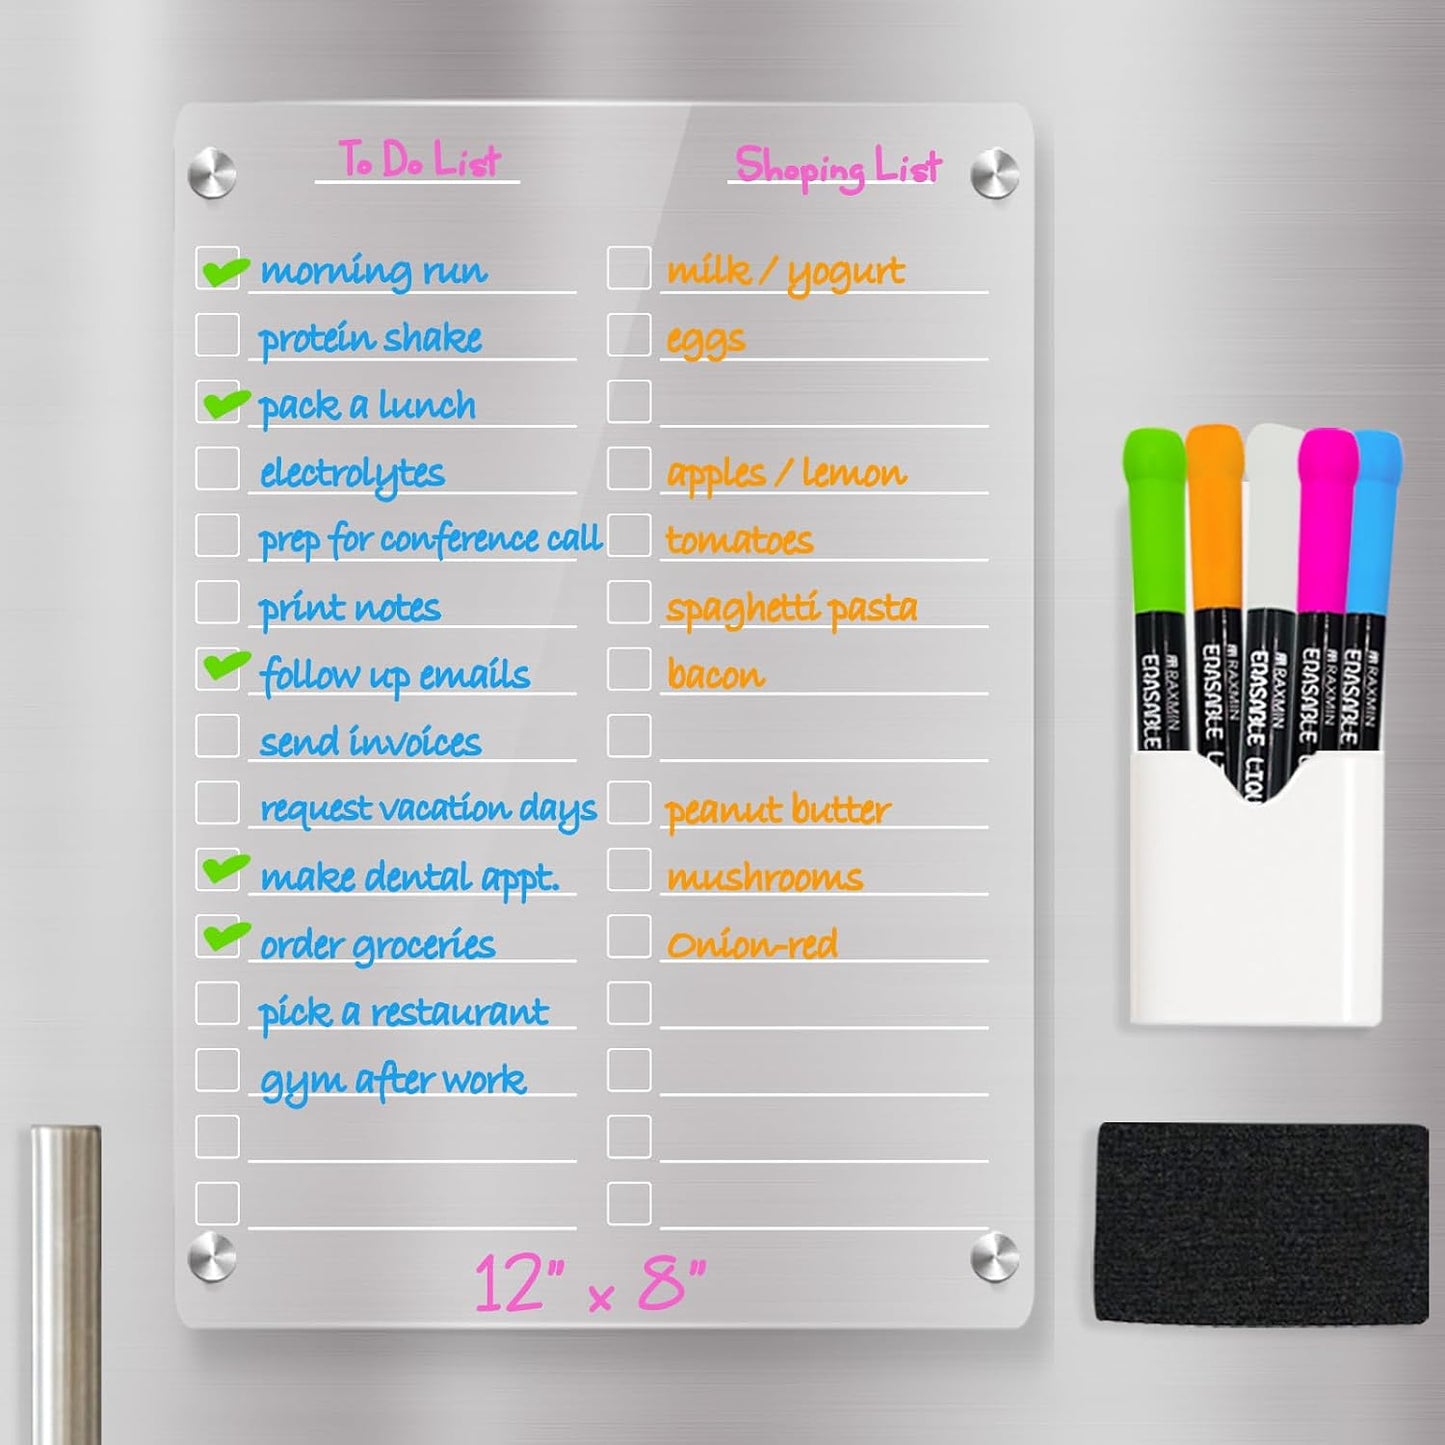 To Do List
Shoping List
morning run
protein shake
pack a lunch
electrolytes
prep for conference call
print notes
follow up emails
send invoices
request vacation days
make dental appt.
order groceries
pick a restaurant
gym after work
milk / yogurt
eggs
apples / lemon
tomatoes
spaghetti pasta
bacon
peanut butter
mushrooms
Onion-red
12" x 8"
RAXMIN
ERASABLE
RAXMIN
ERASABLE LI
RAXMIN
ERASABLE LIQU
RAXMIN
ERASABLE
RAXMIN
ERASABLE